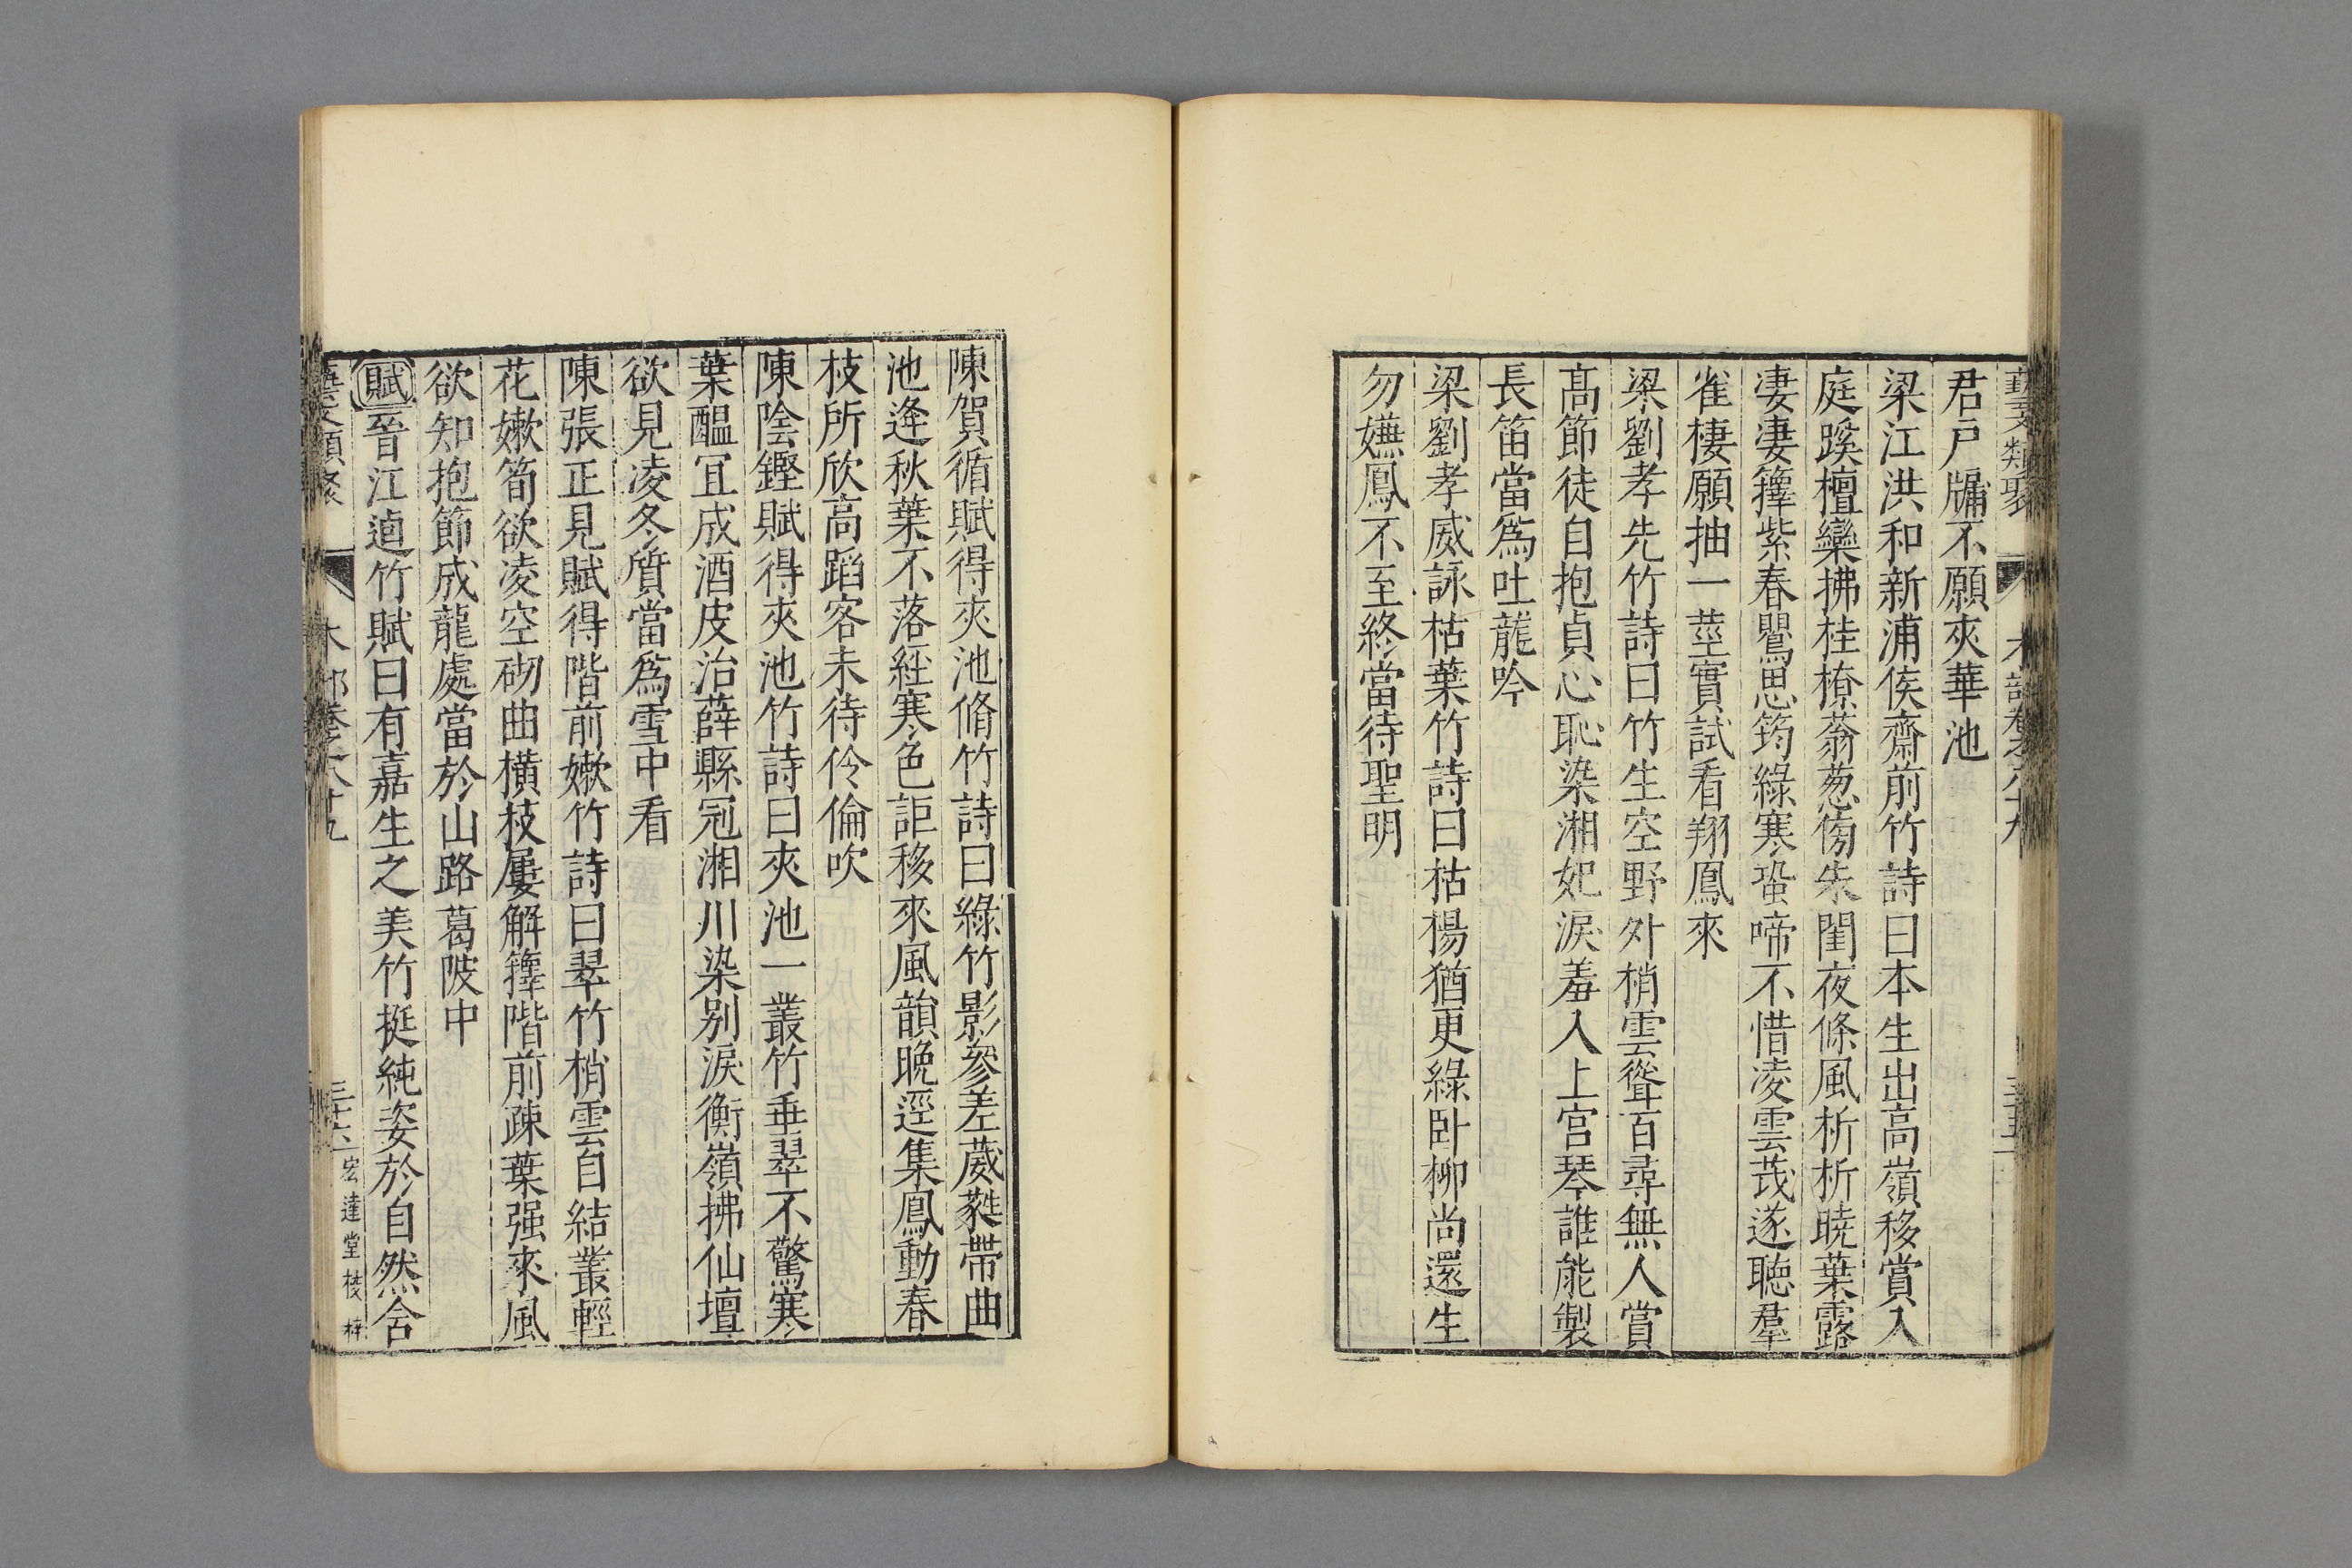 藝文類聚 木部卷之八十九 三十五
君戶牖不願夾華池
梁江洪和新浦侯齋前竹詩曰本生出高嶺移賞入
庭蹊檀欒拂桂橑蓊葱傍朱閨夜條風析析曉葉露
凄凄籜紫春鸎思筠綠寒蛩啼不惜凌雲茂遂聽羣
雀棲願抽一莖實試看翔鳳來
梁劉孝先竹詩曰竹生空野外梢雲聳百尋無人賞
高節徒自抱貞心恥染湘妃淚羞入上宮琴誰能製
長笛當爲吐龍吟
梁劉孝威詠枯葉竹詩曰枯楊猶更綠卧柳尚還生
勿嫌鳳不至終當待聖明
陳賀循賦得夾池脩竹詩曰綠竹影參差葳蕤帶曲
池逢秋葉不落經寒色詎移來風韻晚逕集鳳動春
枝所欣高蹈客未待伶倫吹
陳陰鏗賦得夾池竹詩曰夾池一叢竹垂翠不驚寒
葉醞宜成酒皮治薛縣冠湘川染别淚衡嶺拂仙壇
欲見凌冬質當爲雪中看
陳張正見賦得階前嫰竹詩曰翠竹梢雲自結叢輕
花嫰筍欲凌空砌曲橫枝屢解籜階前疎葉强來風
欲知抱節成龍處當於山路葛陂中
賦 晉江逌竹賦曰有嘉生之美竹挺純姿於自然含
藝文類聚 木部卷之八十九 三十六 宏達堂校梓